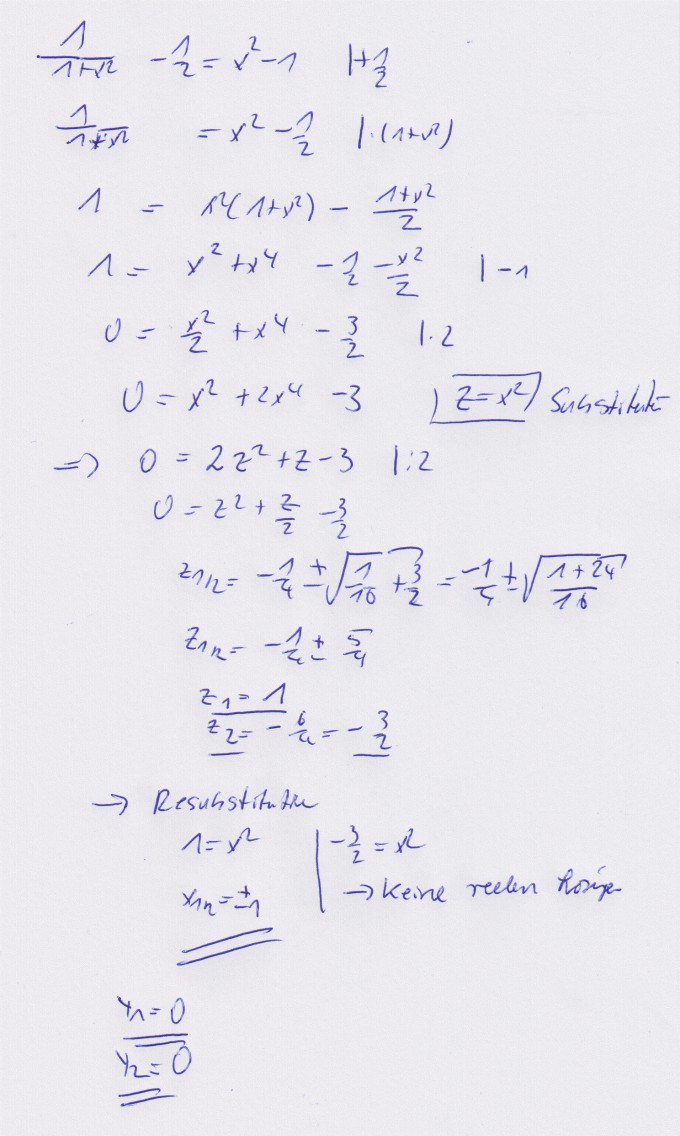 1/(1+x²) - 1/2 = x² - 1 |+ 1/2
1/(1+x²) = x² - 1/2 |·(1+x²)
1 = x²(1+x²) - (1+x²)/2
1 = x² + x⁴ - 1/2 - x²/2 |-1
0 = x²/2 + x⁴ - 3/2 |·2
0 = x² + 2x⁴ - 3 | z=x² Substitution
=> 0 = 2z² + z - 3 |:2
0 = z² + z/2 - 3/2
z1/2 = -1/4 ± √(1/16 + 3/2) = -1/4 ± √((1+24)/16)
z1/2 = -1/4 ± 5/4
z₁ = 1
z₂ = -6/4 = -3/2
→ Resubstitution
1 = x² | -3/2 = x²
x1/2 = ±1 | → keine reelen
y₁ = 0
y₂ = 0